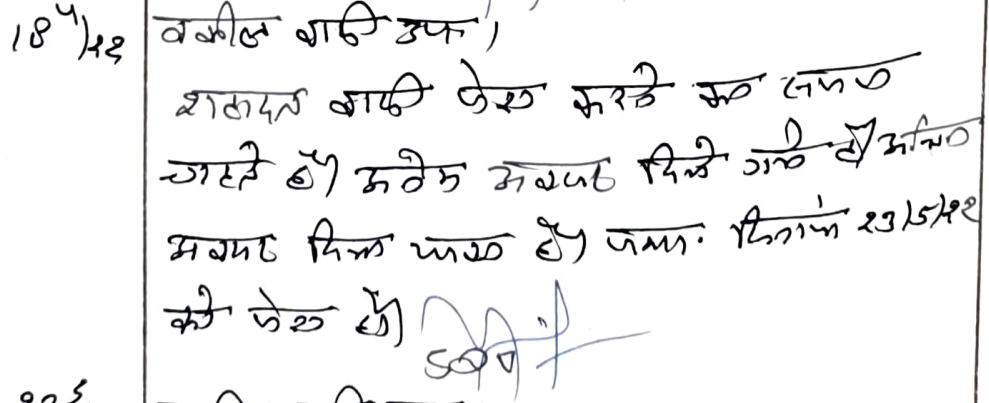 18/4/22 वकील वादी उप।
शहादत वादी पेश करने का समय
चाहते हैं। अनेक अवसर दिये गये हैं। अन्तिम
अवसर दिया जाता है। पत्रा. दिनांक 23/5/22
को पेश हो।